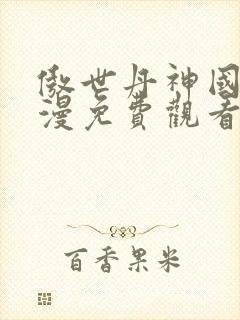 傲世丹神國
漫免費觀看
百香果米